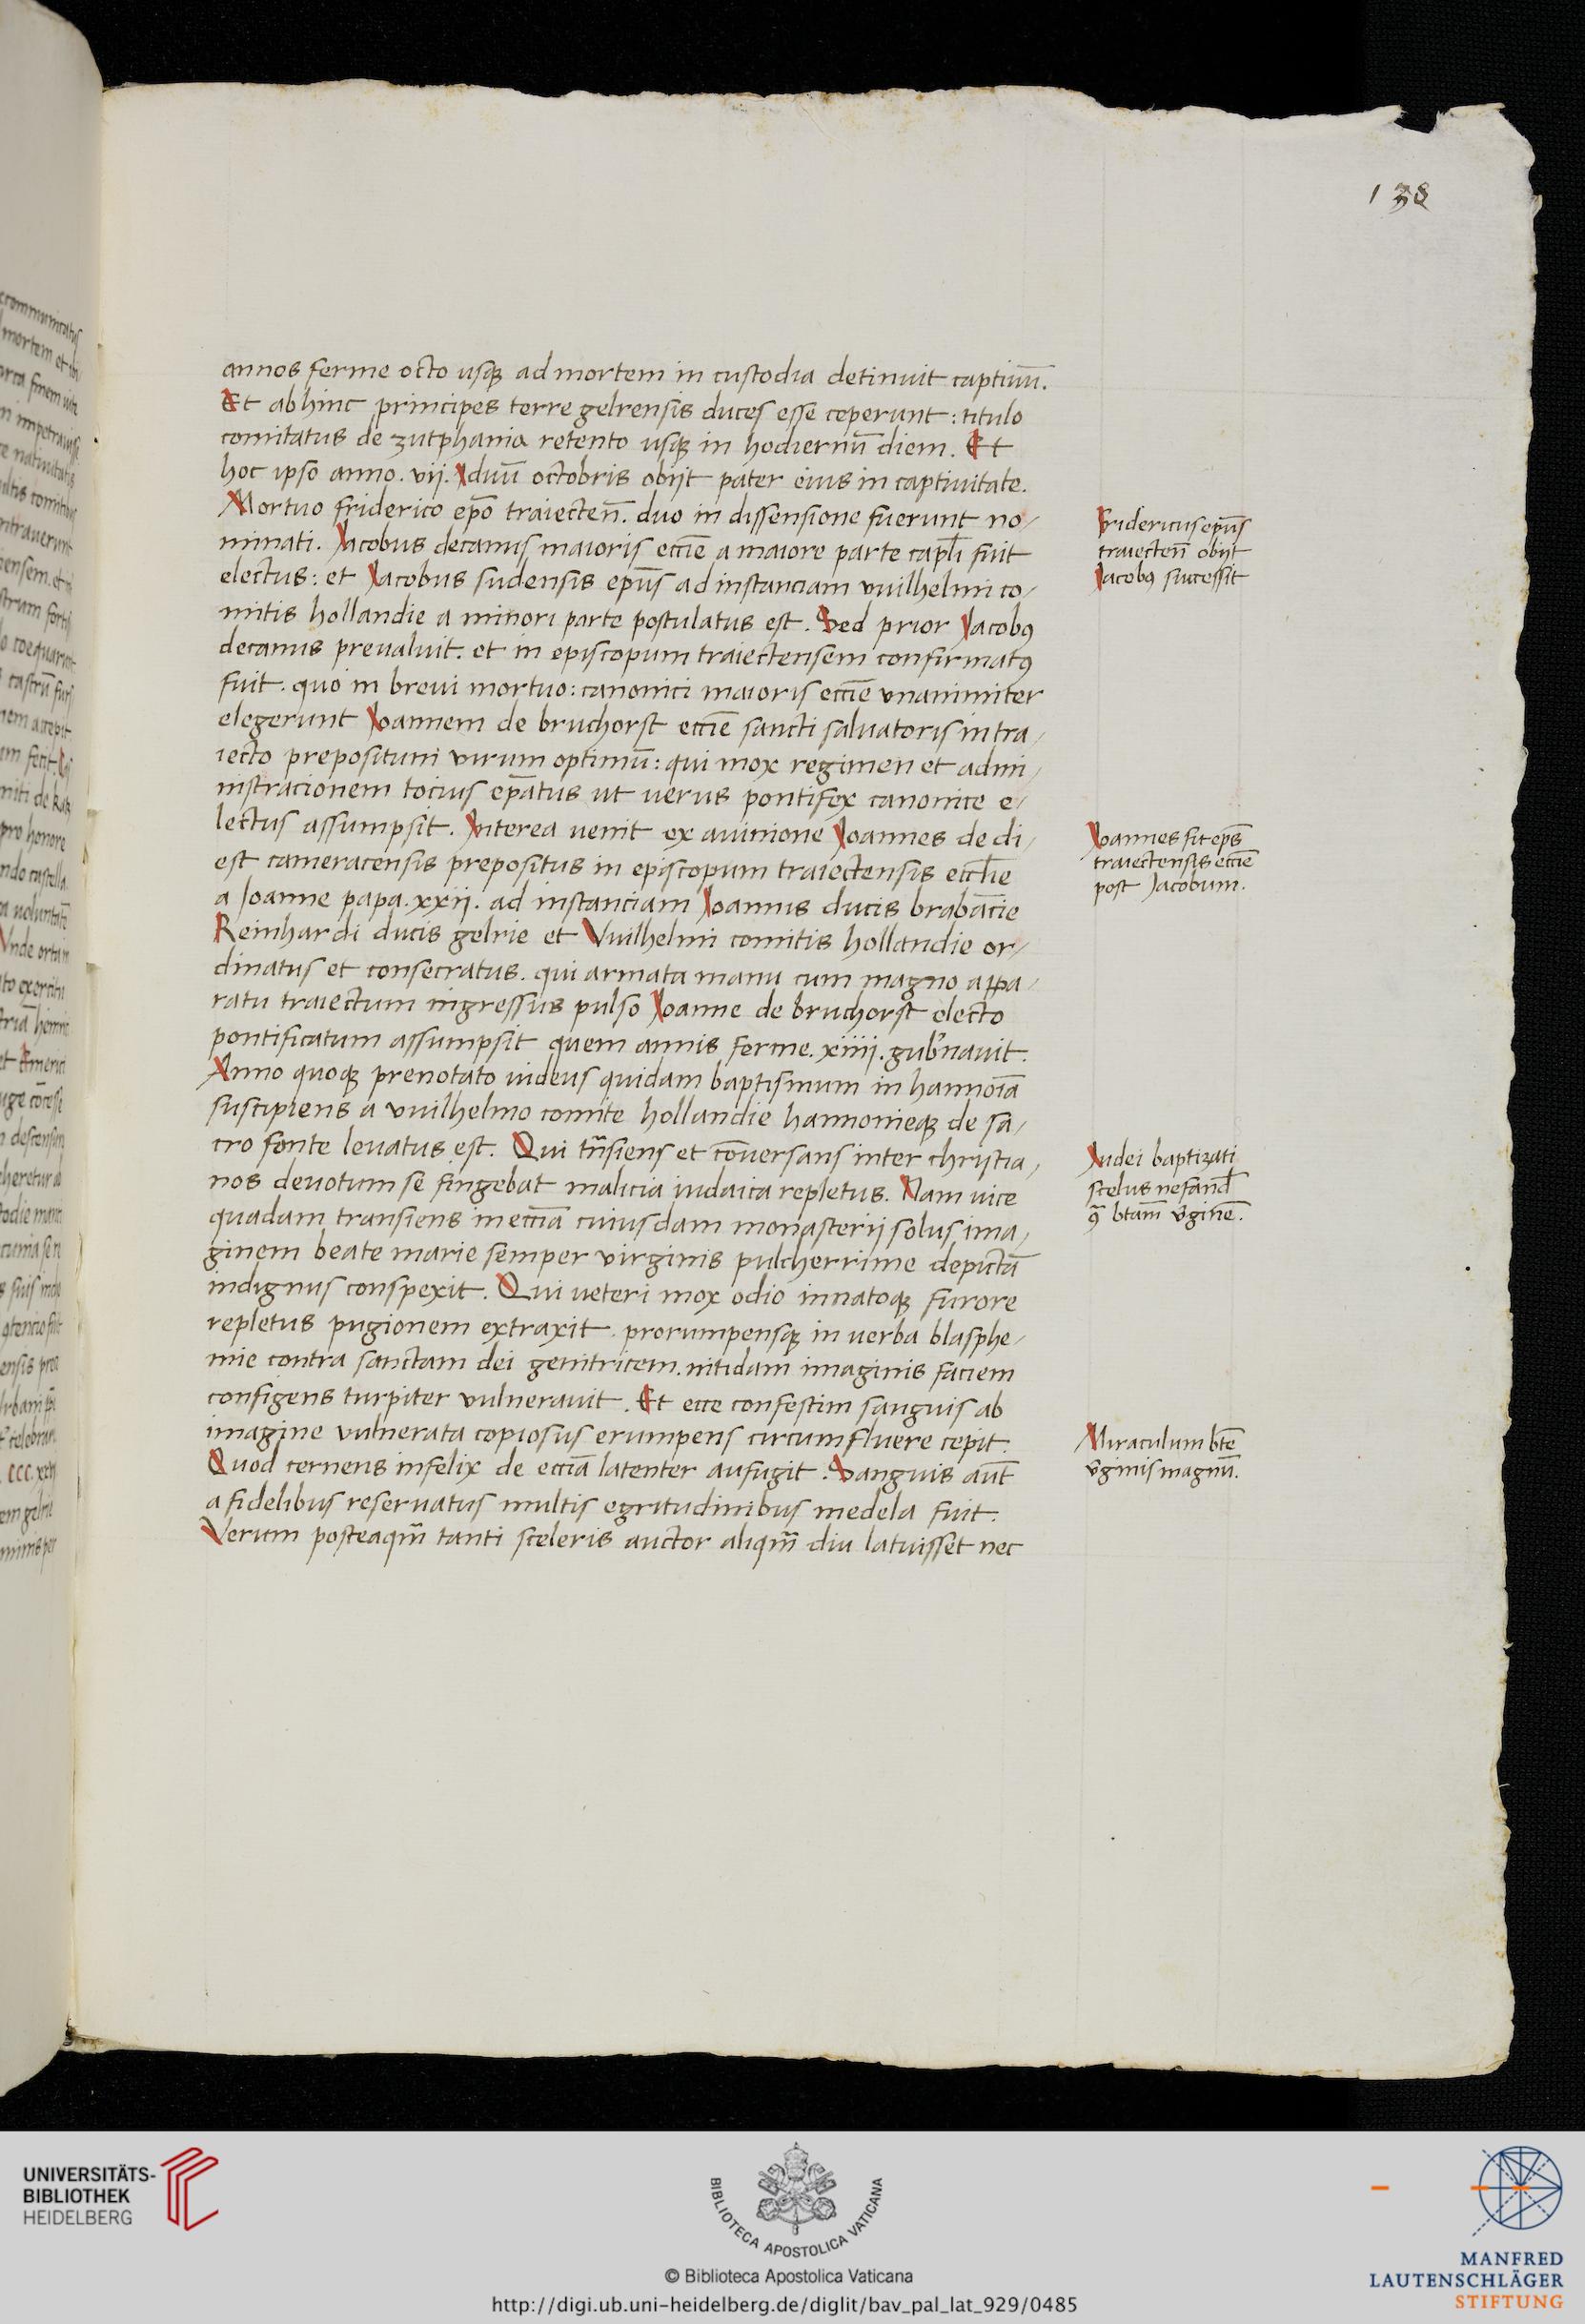 138
annos ferme octo usqꝫ ad mortem in custodia detinuit captiuū.
Et abhinc principes terre gelrensis duces esse ceperunt : titulo
comitatus de zutphania retento usqꝫ in hodiernū diem. Et
hoc ipso anno . vii . Iduū octobris obijt pater eius in captiuitate.
Mortuo friderico ep̄o traiecten̄. duo in dissensione fuerunt no-
minati. Jacobus decanus maioris eccīe a maiore parte capłi fuit
electus: et Jacobus sudensis ep̄us ad instanciam vuilhelmi co-
mitis hollandie a minori parte postulatus est. Sed prior Jacobꝰ
decanus preualuit. et in episcopum traiectensem confirmatꝰ
fuit. quo in breui mortuo: canonici maioris eccīe vnanimiter
elegerunt Joannem de bruchorst eccīe sancti saluatoris in tra-
iecto prepositum virum optimū: qui mox regimen et admi-
nistracionem tocius ep̄atus ut uerus pontifex canonice e-
lectus assumpsit. Interea uenit ex auinione Joannes de di-
est cameracensis prepositus in episcopum traiectensis eccłie
a Joanne papa .xxii. ad instanciam Joannis ducis brabācie
Reinhardi ducis gelrie et Vuilhelmi comitis hollandie or-
dinatus et consecratus. qui armata manu cum magno appa-
ratu traiectum ingressus pulso Joanne de bruchorst electo
pontificatum assumpsit quem annis ferme .xiiij. gub'nauit.
Anno quoqꝫ prenotato iudeus quidam baptismum in hannoīa
suscipiens a vuilhelmo comite hollandie hannonieqꝫ de sa-
cro fonte leuatus est. Qui tn̄siens et cōuersans inter christia-
nos deuotum se fingebat malicia iudaica repletus. Nam uice
quadam transiens in eccīa cuiusdam monasterii solus ima-
ginem beate marie semper virginis pulcherrime depictā
indignus conspexit. Qui ueteri mox odio innatoqꝫ furore
repletus pugionem extraxit. prorumpensqꝫ in uerba blasphe-
mie contra sanctam dei genitricem. nitidam imaginis faciem
configens turpiter vulnerauit. Et ecce confestim sanguis ab
imagine vulnerata copiosus erumpens circumfluere cepit.
Quod cernens infelix de eccīa latenter aufugit. Sanguis aūt
a fidelibus reseruatus multis egritudinibus medela fuit.
Verum posteaqm̄ tanti sceleris auctor aliqm̄ diu latuisset nec
Fridericus ep̄us
traiecten̄ obijt
Jacobꝰ successit
Joannes fit ep̄s
traiectensis eccīe
post Jacobum.
Judei baptizati
scelus nefand̄
9͂ btam̄ v̄ginē.
Miraculum btē
v̄ginis magnū.
UNIVERSITÄTS-
BIBLIOTHEK
HEIDELBERG
BIBLIOTECA APOSTOLICA VATICANA
© Biblioteca Apostolica Vaticana
http://digi.ub.uni-heidelberg.de/diglit/bav_pal_lat_929/0485
MANFRED
LAUTENSCHLÄGER
STIFTUNG